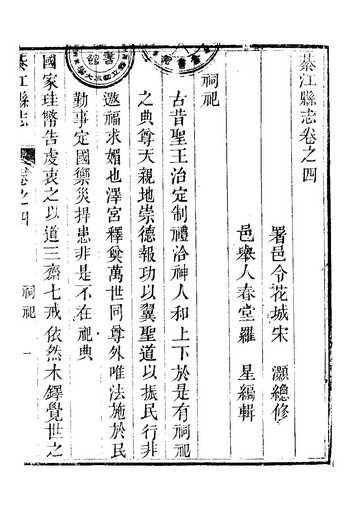 綦江縣志卷之四
署邑令花城宋 灝總修
邑舉人春堂羅 星編輯
祠祀
古昔聖王治定制禮洽神人和上下於是有祠祀
之典尊天親地崇德報功以翼聖道以振民行非
邀福求媚也澤宮釋奠萬世同尊外唯法施於民
勤事定國禦災捍患非是不在祀典
國家珪幣告虔衷之以道三齋七戒依然木鐸覺世之
綦江縣志 卷之四 祠祀 一